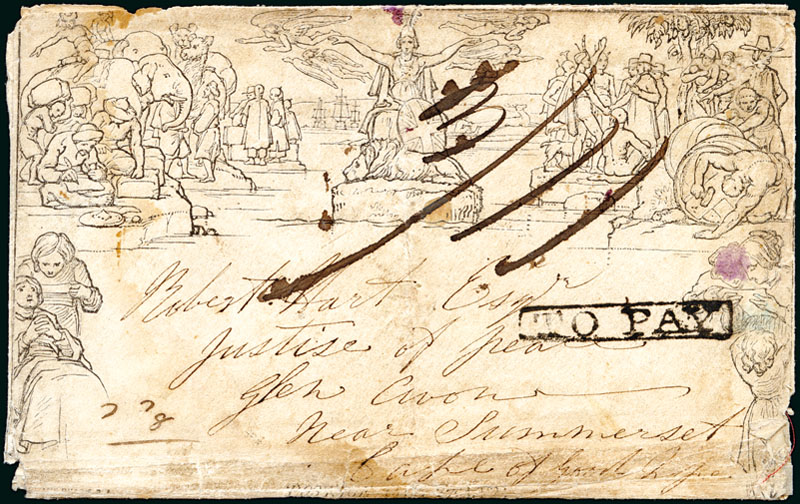 Robert Hart Esqr
TO PAY
Justise of peace
Glen Avon
Near Summerset
Cape of Good Hope